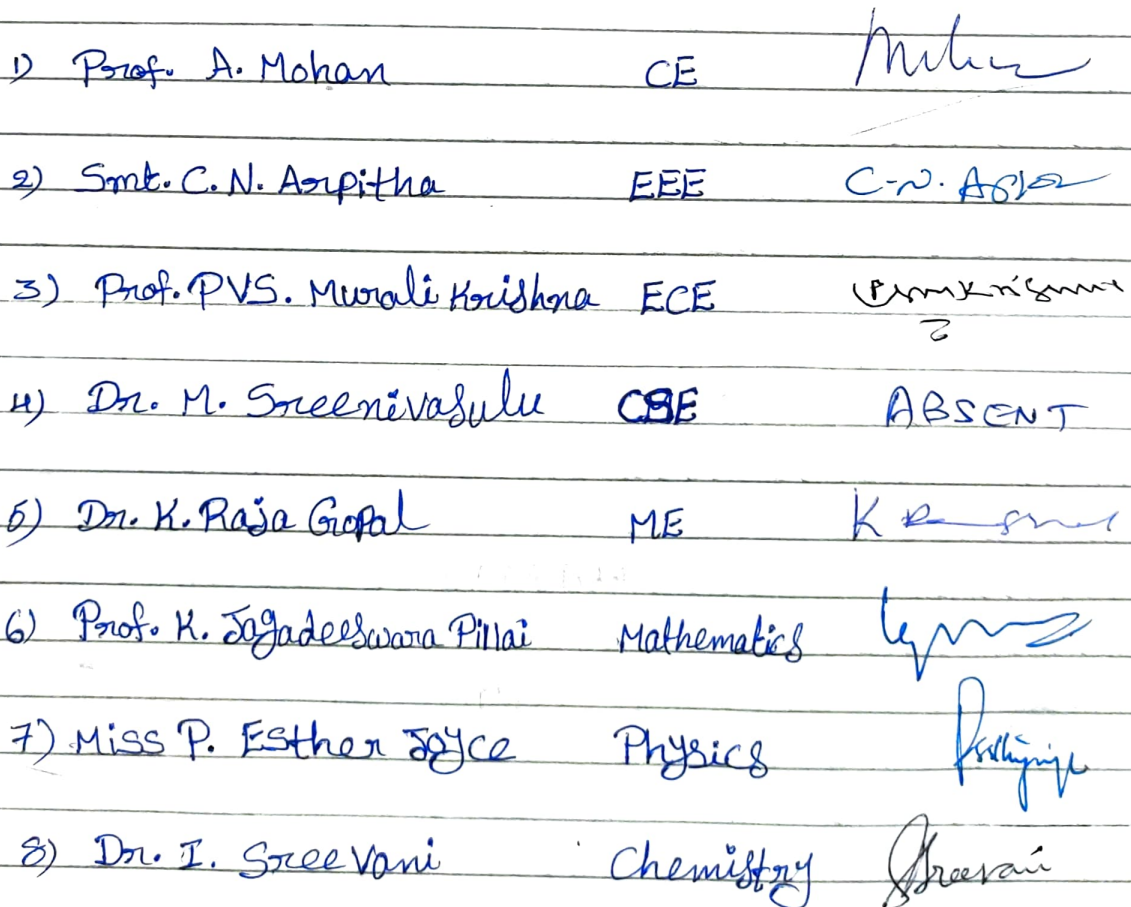 1) Prof. A. Mohan CE
2) Smt. C. N. Arpitha EEE C-N.
3) Prof. PVS. Murali Krishna ECE
4) Dr. M. Sreenivasulu CSE ABSENT
5) Dr. K. Raja Gopal ME K
6) Prof. K. Jagadeeswara Pillai Mathematics
7) Miss P. Esther Joyce Physics
8) Dr. I. Sreevani Chemistry Sreevani